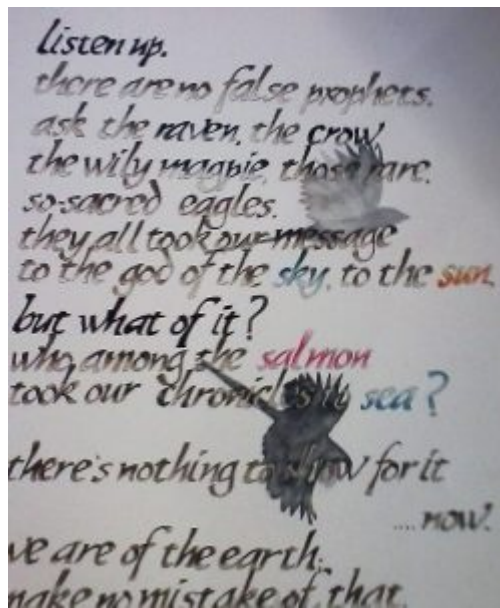 Listen up.
there are no false prophets.
ask the raven, the crow
the wily magpie, those rare,
so-sacred eagles.
they all took our message
to the god of the sky, to the sun.
but what of it?
who among the salmon
took our chronicles to sea?
there's nothing to show for it
.... now.
we are of the earth;
make no mistake of that